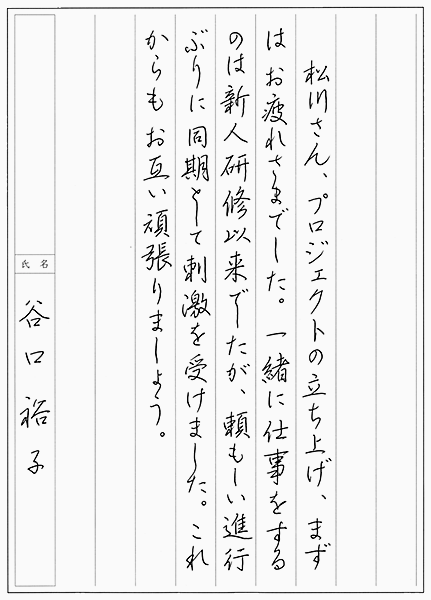 松川さん、プロジェクトの立ち上げ、まず
は お疲れさまでした。一緒に仕事をする
のは新人研修以来でしたが、頼もしい進行
ぶりに同期として刺激を受けました。これ
からも お互い頑張りましょう。
氏名
谷口裕子